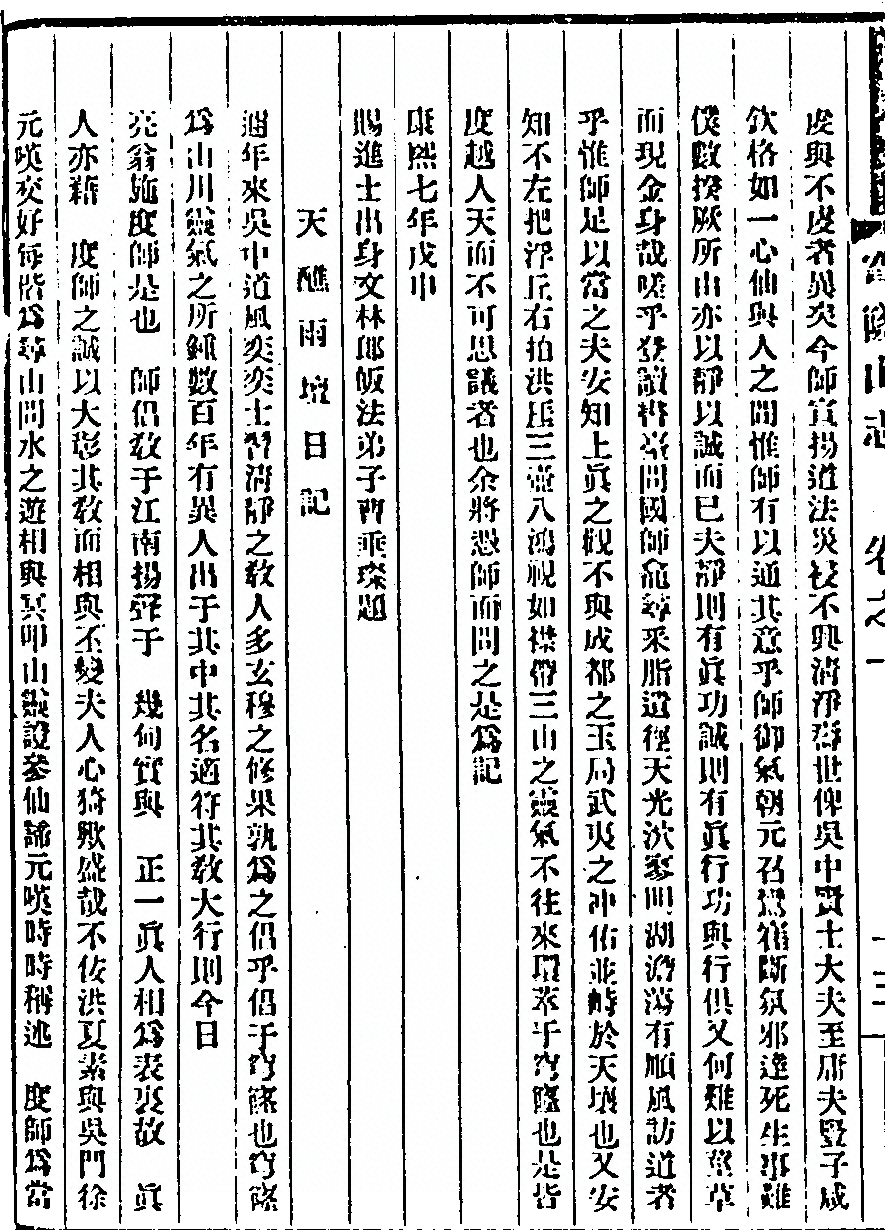 穹窿山志 卷之一
虔與不虔者異矣今師宣揚道法災祲不興清淨為世俾吳中賢士大夫至庸夫豎子咸
欽格如一心仙與人之間惟師有以通其意乎師御氣朝元召鸞鶴斷氛邪達死生事難
僕數揆厥所由亦以靜以誠而已夫靜則有眞功誠則有眞行功與行俱又何難以莖草
而現金身哉嗟乎登讀書臺問國師龕尋采脂遺徑天光泬寥明湖澹蕩有順風訪道者
乎惟師足以當之夫安知上眞之觀不與成都之玉局武夷之沖佑並峙於天壤也又安
知不左把浮丘右拍洪厓三壺八鴻視如襟帶三山之靈氣不往來環萃于穹窿也是皆
度越人天而不可思議者也余將憑師而問之是爲記
康熙七年戊申
賜進士出身文林郎皈法弟子曹垂璨題
天醮雨壇日記
邇年來吳中道風奕奕士習清靜之敎人多玄穆之修果孰爲之倡乎倡于穹窿也穹窿
爲山川靈氣之所鍾數百年有異人出于其中其名適符其敎大行則今日
亮翁施度師是也 師倡敎于江南揚舜于 幾何實與 正一眞人相爲表裏故 眞
人亦藉 度師之誠以大彰其敎而相與丕變夫人心猗歟盛哉不佞洪夏素與吳門徐
元嘆交好每偕爲尋山問水之遊相與冥叩山靈證參仙諦元嘆時時稱述 度師爲當